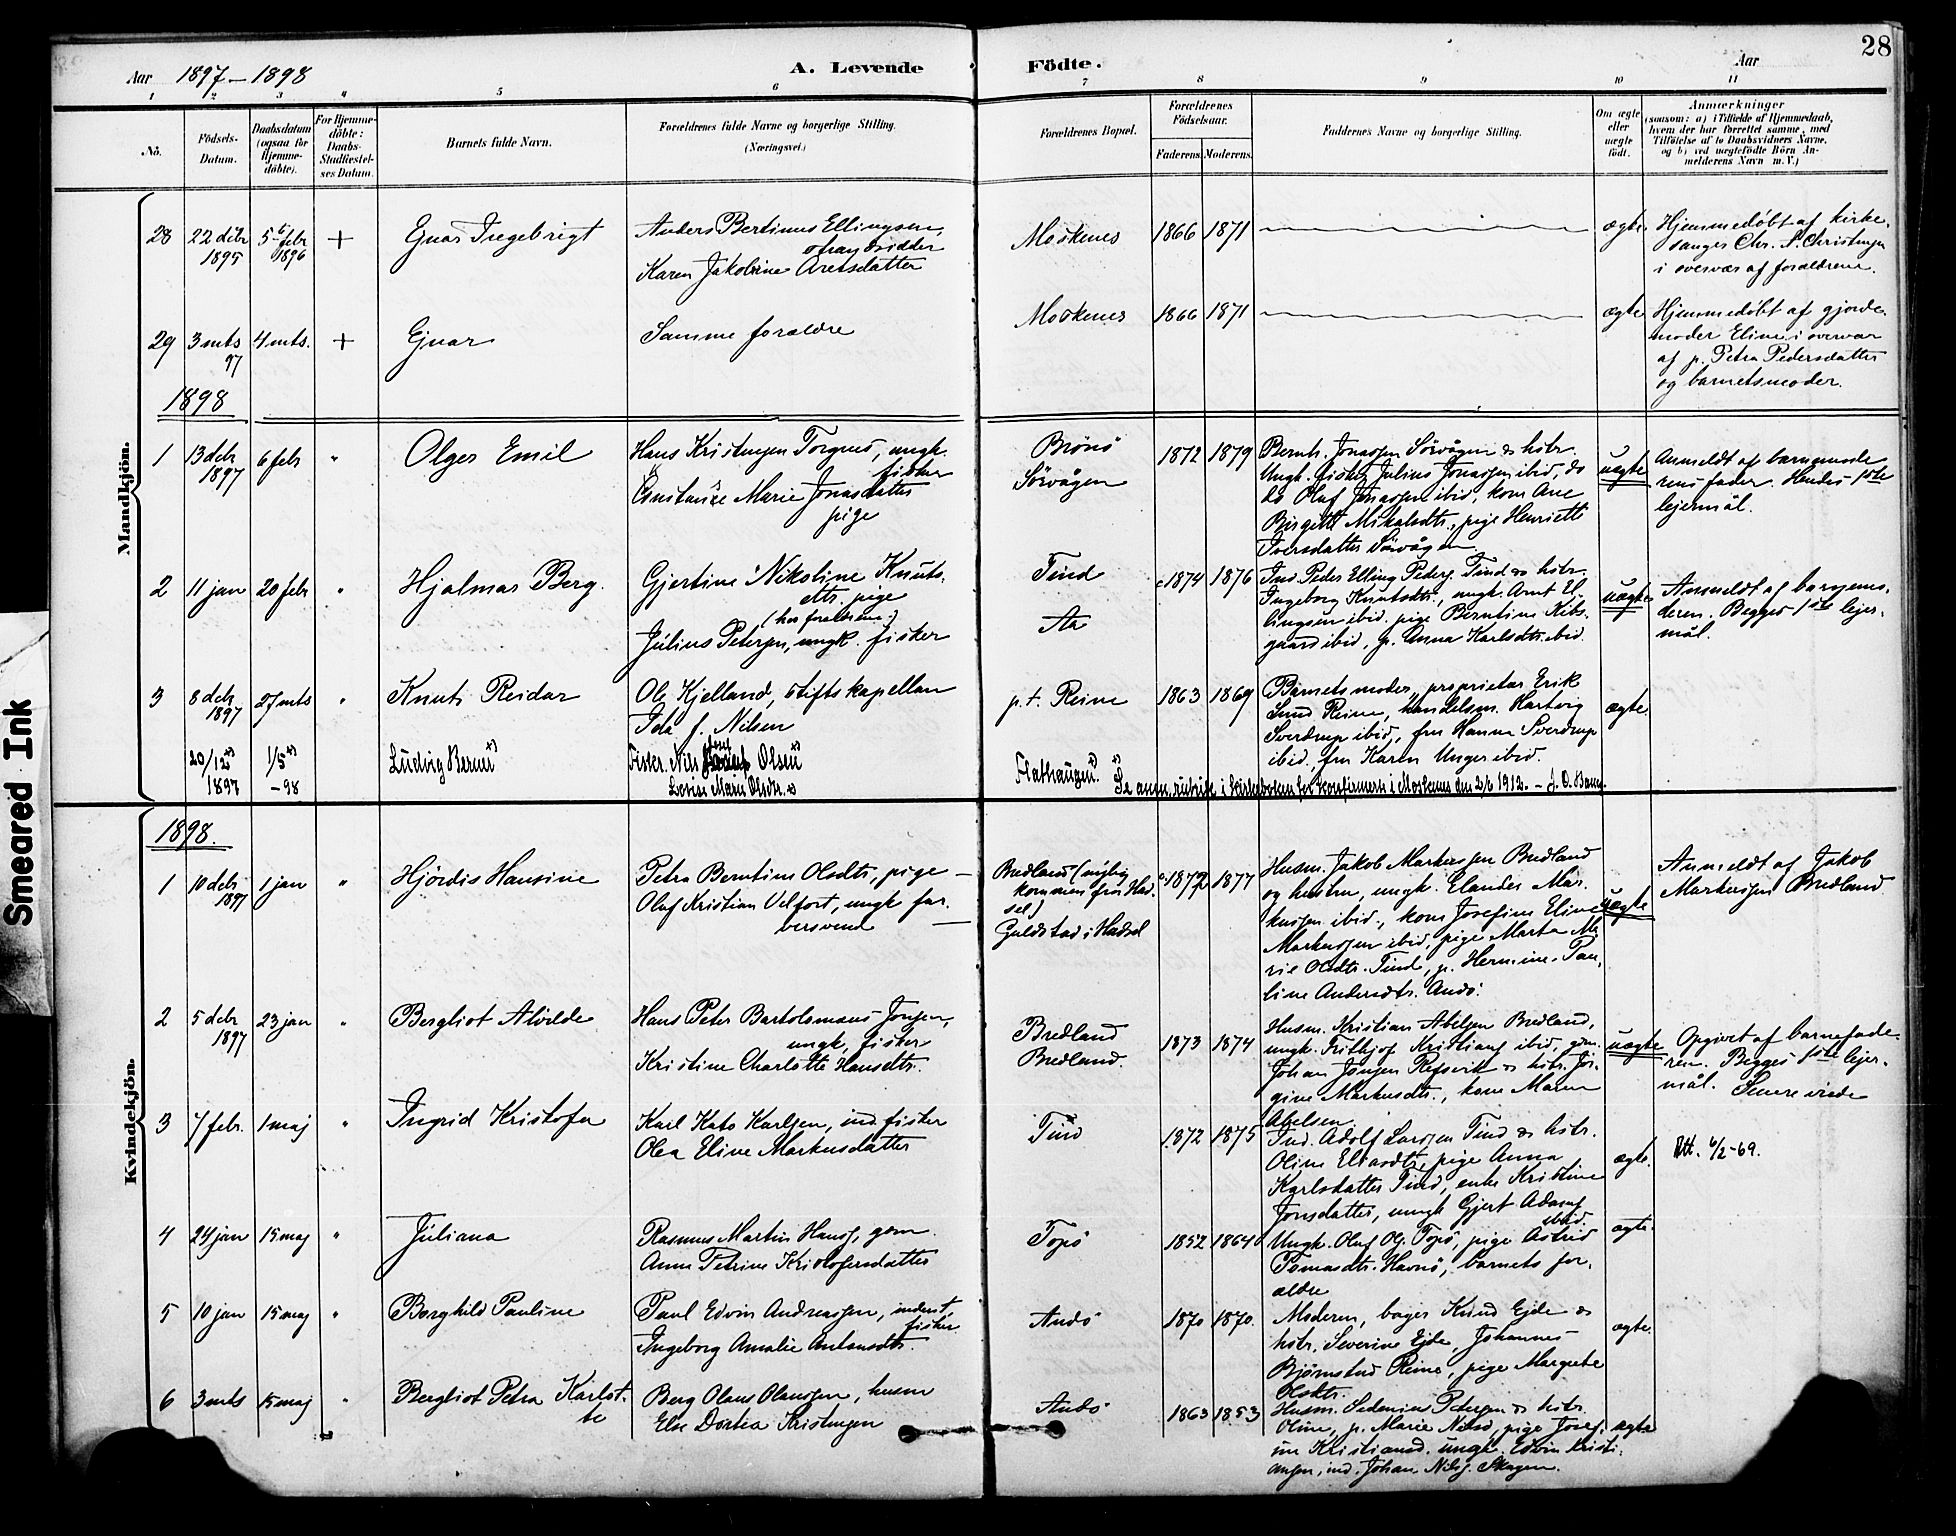 28
Aar 1897–1898
A. Levende Födte.
Aar
1 2 3 4 5 6 7 8 9 10 11
Nö.
Födsels-
Datum.
Daabsdatum
(ogsaa for
Hjemme-
döbte).
For Hjemme-
döbte:
Daabs-
Stadfæstel-
ses Datum.
Barnets fulde Navn.
Forældrenes fulde Navne og borgerlige Stilling.
(Næringsvei.)
Forældrenes Bopæl.
Forældrenes
Födselsaar.
Faderens. Moderens.
Faddernes Navne og borgerlige Stilling.
Om ægte
eller
uægte
födt.
Anmærkninger
(saasom: a) i Tilfælde af Hjemmedaab,
hvem der har forrettet samme, med
Tilföielse af to Daabsvidners Navne,
og b) ved uægtefödte Börn An-
melderens Navn m. V.)
Mandkjön.
28 22 dcbr 1895 5 febr 1896 + Ejnar Ingebrigt
Anders Bertinus Ellingsen,
Karen Jakobine Aretsdatter
Moskenes 1866 1871 ægte
Hjemmedøbt af kirke-
sanger Chr. S. Christensen
i overvær af forældrene.
29 3 mts 97 4 mts. + Ejnar
Samme forældre
Moskenes 1866 1871 ægte
Hjemmedøbt af gjorde-
moder Eline i overvær
af p. Petra Pedersdatter
og barnetsmoder.
1898
1 13 dcbr 1897 6 febr " Olger Emil
Hans Kristensen Torgnes, ungk.
fisker
Constance Marie Jonasdatter
pige
Brönö
Sörvågen
1872 1879
Bernh. Jonassen Sörvågen & hstr.
Ungk. fisker Julius Jonassen ibid, do
do Oluf Jonassen ibid, kone Ane
Birgitte Mikalsdtr., pige Henriette
Iversdatter Sörvågen
uægte
Anmeldt af barnemode
rens fader. Hendes 1ste
lejermål.
2 11 jan 20 febr " Hjalmar Berg.
Gjertine Nikoline Knuts-
dtr. pige
(hos forældrene)
Julius Petersen, ungk. fisker
Tind
Aa
1874 1876
Ind. Peder Elling Peders. Tind & hstr.
Ingeborg Knutsdtr., ungk. Arnt El-
lingsen ibid. pige Berntine Kibs-
gaard ibid, p. Anna Karlsdtr. ibid.
uægte
Anmeldt af barnemo-
deren. Begges 1ste lejer-
mål.
3 8 dcbr 1897 27 mts " Knut Reidar
Ole Kjelland, stiftskapellan
Ida f. Nilsen
p.t. Reine 1863 1869
Barnets moder, proprietær Erik
Lund Reine, handelsm. Hartvig
Sverdrup ibid, fru Hanna Sverdrup
ibid, fru Karen Unger ibid.
ægte.
20/12 1897 1/5 -98 Ludvig Berner
Fisker Nils Olsen
Lovise Marie Olsdtr.
Flathaugen.
Se anm. rubrik i kirkeboken for konfirmerte i Moskenes den 2/6 1912. – J. O. Bang.
Kvindekjön.
1898.
1 10 dcbr 1897 1 jan " Hjördis Hansine
Petra Berntine Olsdtr., pige –
Oluf Kristian Velfort, ungk far-
versvend –
Bredland (nylig
kommen fra Had-
sel)
Guldstad i Hadsel
1872 1877
Husm. Jakob Markussen Bredland
og hustru, ungk. Elander Mar-
kussen ibid., kone Josefine Eline
Markussen ibid, pige Marta Ma-
rie Olsdtr. Tind, p. Hermine Pau-
line Andersdtr. Andö.
uægte
Anmeldt af Jakob
Markussen Bredland
2 5 dcbr 1897 23 jan " Bergliot Alvilde
Hans Peter Bartolomæus Jensen,
ungk, fisker
Kristine Charlotte Hansdtr.
Bredland
Bredland.
1873 1874
Husm. Kristian Abelsen Bredland,
ungk. Frithjof Kristians. ibid, gm.
Johan Jensen Refsvik & hstr. Jör-
gine Markusdtr., kone Maren
Abelsen.
uægte
Opgivet af barnefade-
ren. Begges 1ste lejer-
mål. Senere viede
3 7 febr. 1 maj " Ingrid Kristofa
Karl Kato Karlsen, ind. fisker
Olea Eline Markusdatter
Tind 1872 1875
Ind. Adolf Larsen Tind & hstr.
Oline Eliasdtr, pige Anna
Karlsdatter Tind, enke Kristine
Jonsdatter, ungk Gjert Adams.
ibid.
ægte.
Att. 6/2-69.
4 24 jan 15 maj " Juliana
Rasmus Martin Hanss, gom.
Anne Petrine Kristofersdatter
Topö 1852 1864
Ungk. Oluf Ols. Topö, pige Astrid
Tomasdtr. Havnö, barnets for-
ældre
ægte.
5 10 jan 15 maj " Borghild Pauline
Paul Edvin Andreassen, inderst,
fisker
Ingeborg Amalie Antonsdtr.
Andö 1870 1870.
Moderen, bager Knud Ejde &
hstr. Severine Ejde, Johannes
Bjørnstad Reine, pige Margrete
Olsdtr.
ægte.
6 3 mts 15 maj " Bergliot Petra Karlot-
te
Berg Olaus Olaussen, husm
Else Dortea Kristensen
Andö 1863 1853
Husm. Sedenius Petersen & hstr.
Oline, p. Marie Nilsd, pige Josef-
ine Kristiansd. ungk. Edvin Kristi-
ansen, ind. Johan Nils. Skagen.
ægte
Smeared Ink